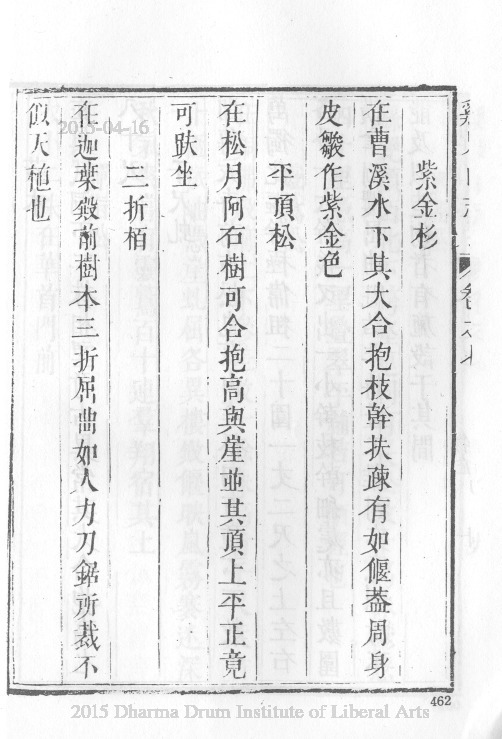 紫金杉
在曹溪水下其大合抱枝幹扶疎有如偃葢周身
皮皴作紫金色
平頂松
在松月阿石樹可合抱高與崖並其頂上平正竟
可趺坐
三折栢
在迦葉殿前樹本三折屈曲如人力刀鋸所裁不
似天植也
462
2015-04-16
2015 Dharma Drum Institute of Liberal Arts